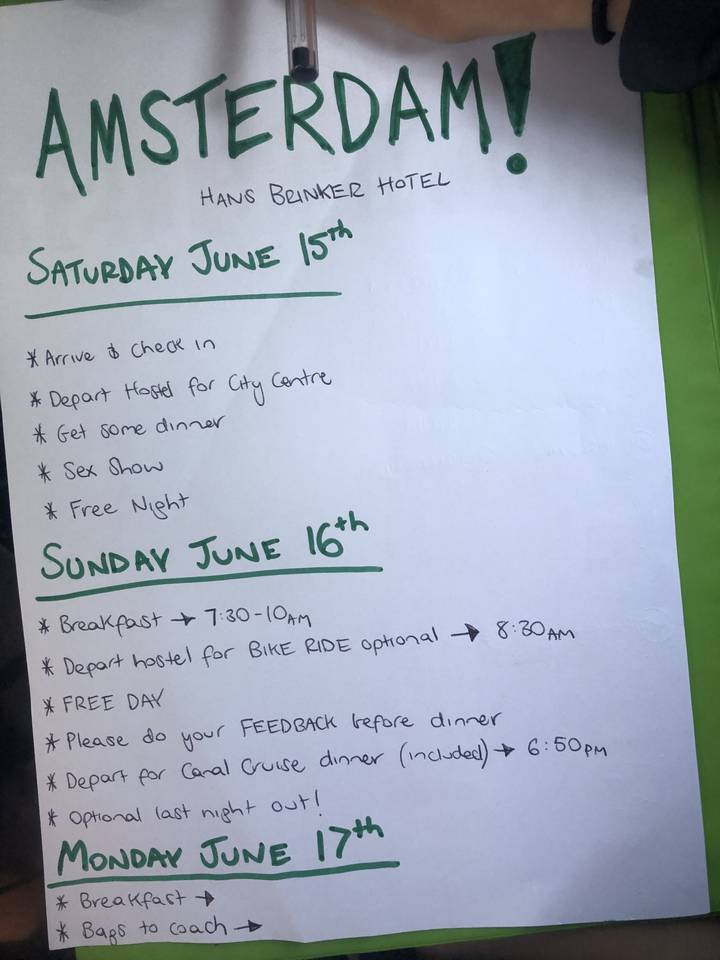 AMSTERDAM!
HANS BRINKER HOTEL
SATURDAY JUNE 15th
* Arrive & Check in
* Depart Hostel for City Centre
* Get some dinner
* Sex Show
* Free Night
SUNDAY JUNE 16th
* Breakfast → 7:30-10AM
* Depart hostel for BIKE RIDE optional → 8:30AM
* FREE DAY
* Please do your FEEDBACK before dinner
* Depart for Canal Cruise dinner (included) → 6:50PM
* Optional last night out!
MONDAY JUNE 17th
* Breakfast →
* Bags to coach →